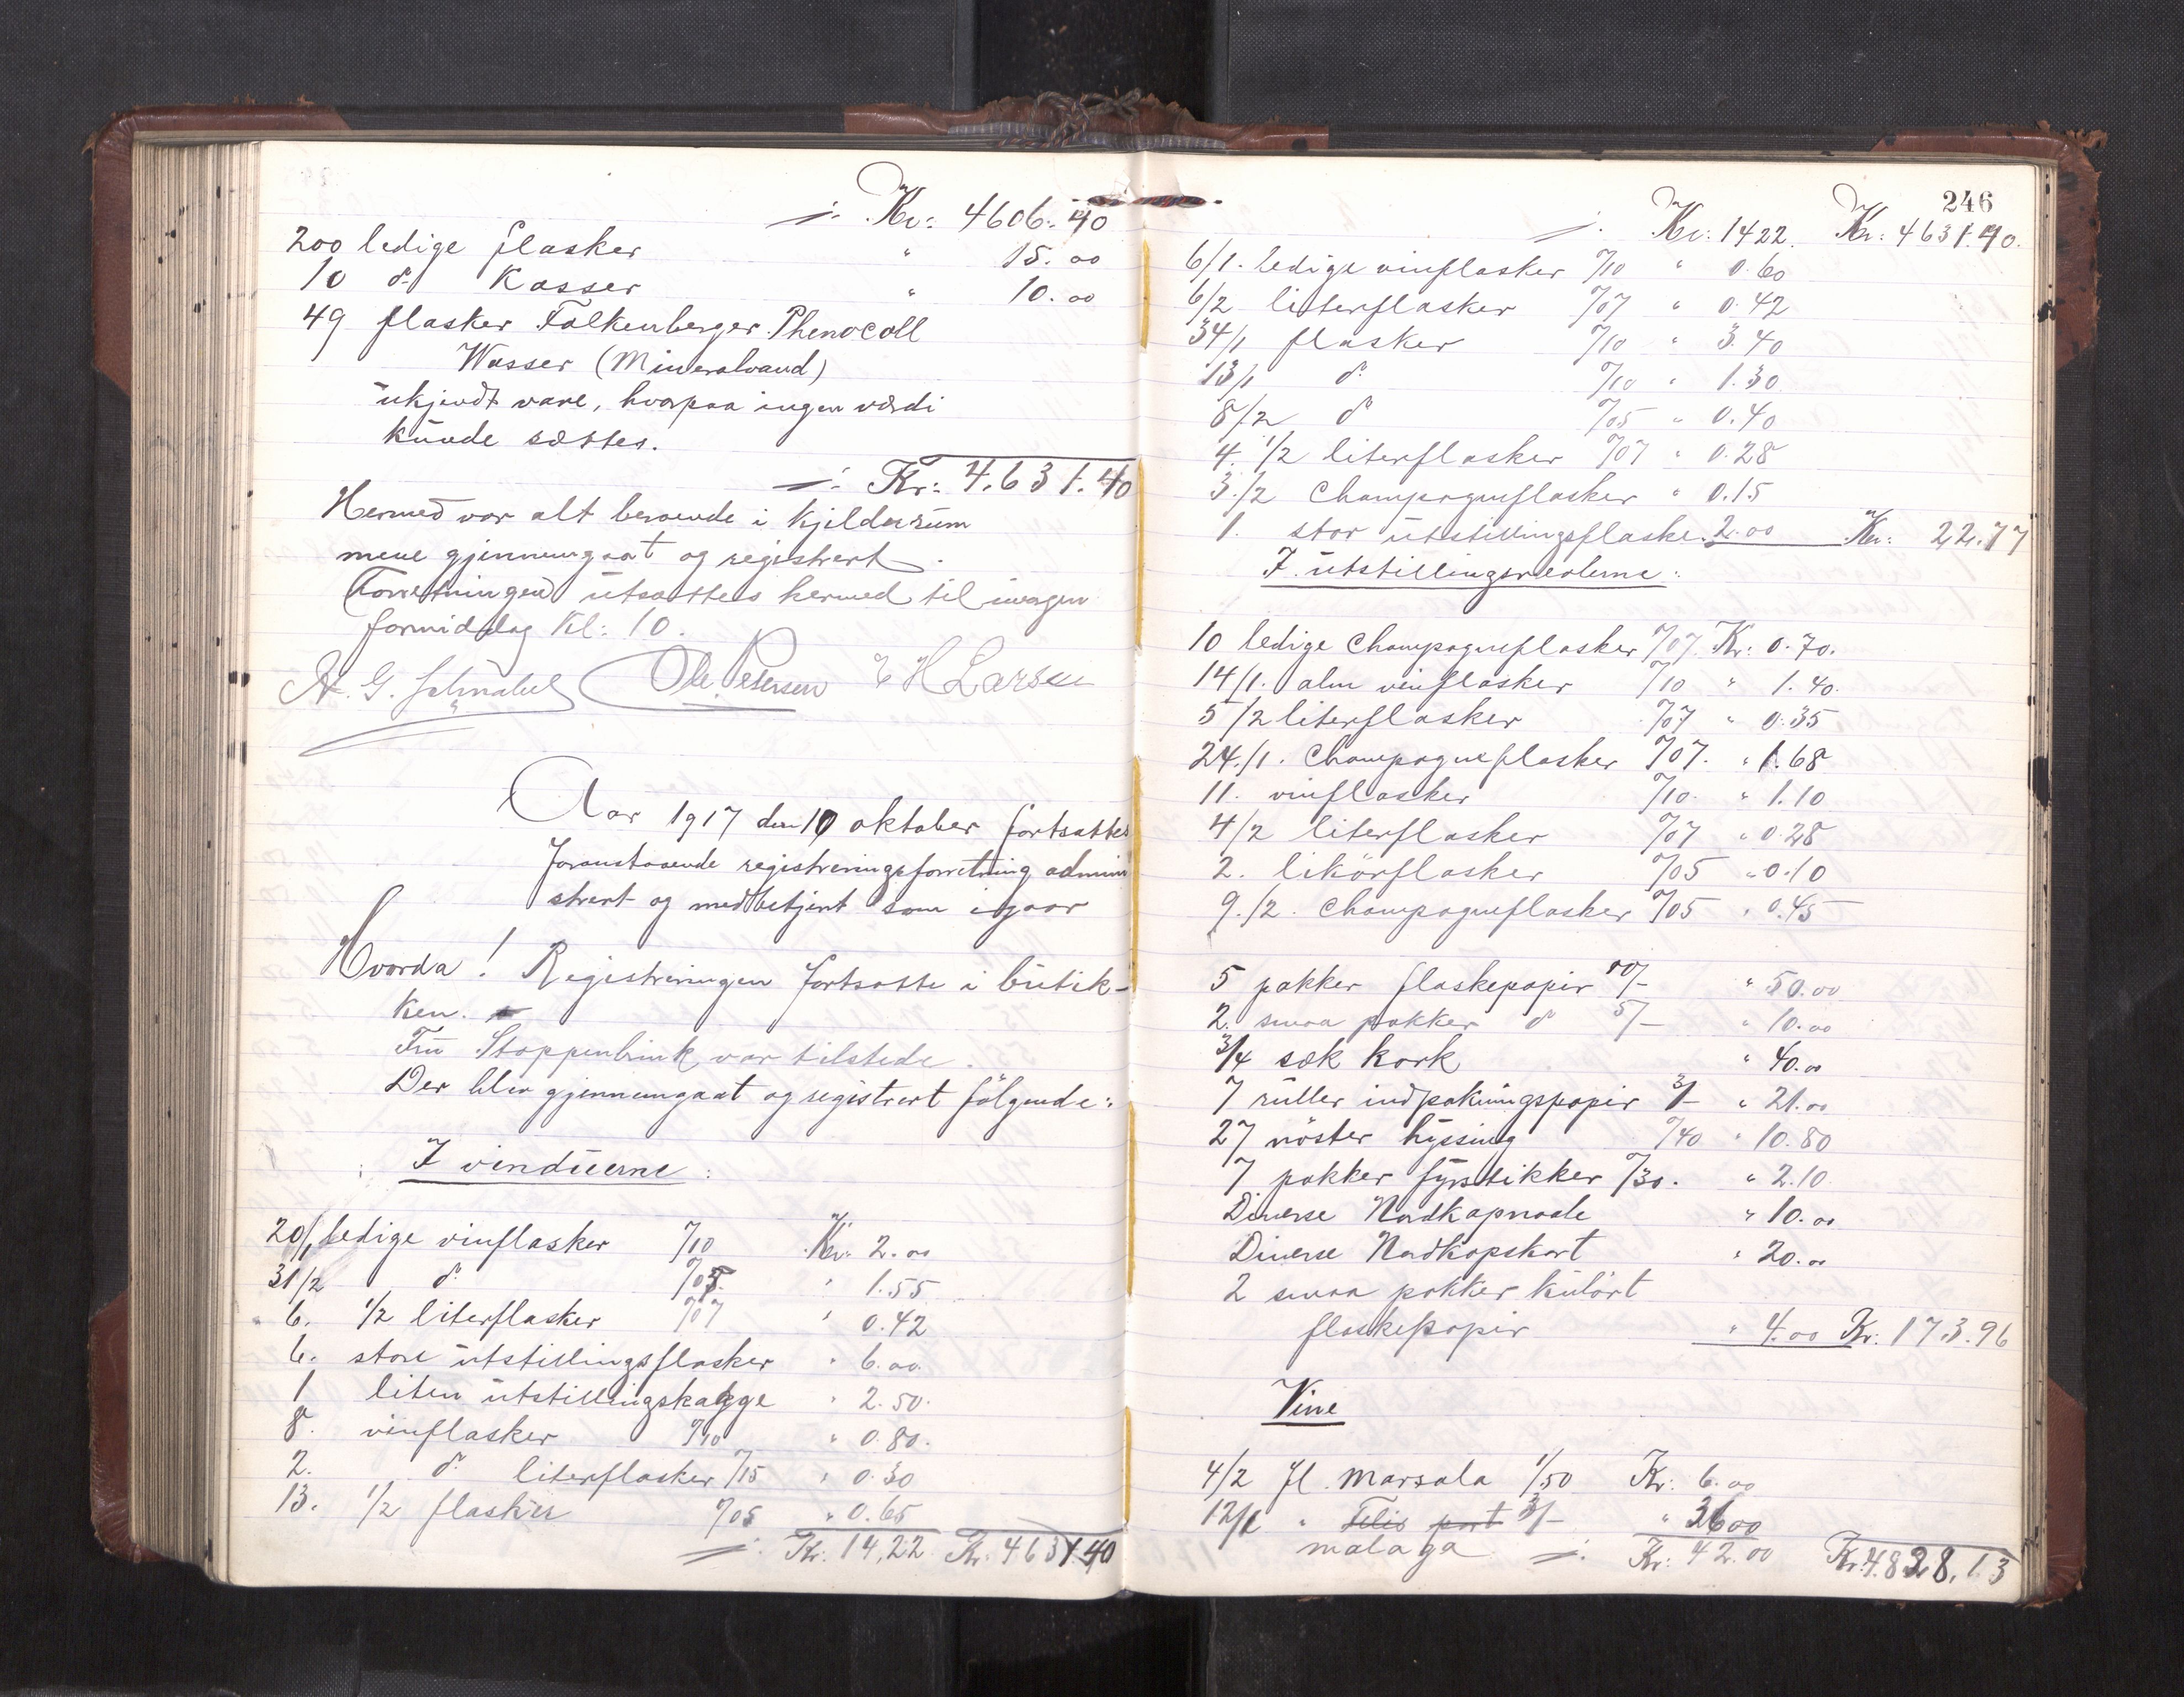 ⁒ Kr: 4606.40
200 ledige flasker " 15.00
10 do Kasser " 10.00
49 flasker Falkenberger Phenocoll
Wasser (Mineralvand)
ukjendt vare, hvorpaa ingen værdi
kunde sættes.
⁒ Kr: 4.631.40
Hermed var alt beroende i Kjelderrum
mene gjennemgaat og registrert.
Forretningen utsattes hermed til imorgen
formiddag Kl: 10.
A. G. Schnabel Ole Petersen E H Larsen
Aar 1917 den 10 oktober fortsattes
foranstaaende registreringsforretning admini
strert og medbetjent som igaar
Hvorda! Registreringen fortsatte i butik-
ken.
Fru Stoppenbrink var tilstede.
Der blev gjennemgaat og registrert følgende:
I vinduerne:
20/1 ledige vinflasker 7/10 Kr: 2.00
31/2 do 7/05 " 1.55
6. 1/2 literflasker 7/07 " 0.42
6. store utstillingsflasker " 6.00
1 liten utstillingskagge " 2.50.
8. vinflasker 7/10 " 0.80.
2. do literflasker 7/15 " 0.30
13. 1/2 flasker 7/05 " 0.65
⁒ Kr: 14,22 Kr. 4631.40
246
⁒ Kr: 1422. Kr: 4631.40.
6/1. ledige vinflasker 7/10 " 0.60
6/2 literflasker 7/07 " 0.42
34/1 flasker 7/10 " 3.40
13/1 do 7/10 " 1.30
8/2 do 7/05 " 0.40
4. 1/2 literflasker 7/07 " 0.28
3./2 Champagneflasker " 0.15
1. stor utstillingsflaske. 2.00 Kr: 22.77
I utstillingsreolerne:
10 ledige Champagneflasker 7/07. Kr: 0.70.
14/1. alm vinflasker 7/10 " 1.40.
5/2 literflasker 7/07 " 0.35
24./1. Champagneflasker 7/07. " 1.68
11. vinflasker 7/10. " 1.10
4/2 literflasker 7/07 " 0.28
2. likörflasker 7/05 " 0.10
9./2. Champagneflasker 7/05 " 0.45
5 pakker flaskepapir 10/- " 50.00
2. smaa pakker do 5/- " 10.00
3/4 sæk kork " 40.00
7 ruller indpakningspapir 3/- " 21.00
27 nöster hyssing 7/40 " 10.80
7 pakker fyrstikker 7/30. " 2.10
Diverse Nordkapnaale " 10.00
Diverse Nordkapskort " 20.00
2 smaa pakker kulört
flaskepapir " 4.00 Kr: 173.96
Vine
4/2 fl. Marsala 1/50 Kr: 6.00
12/1 " Felis port 3/- " 36 00
malaga ⁒ Kr: 42.00 Kr: 4.828,13